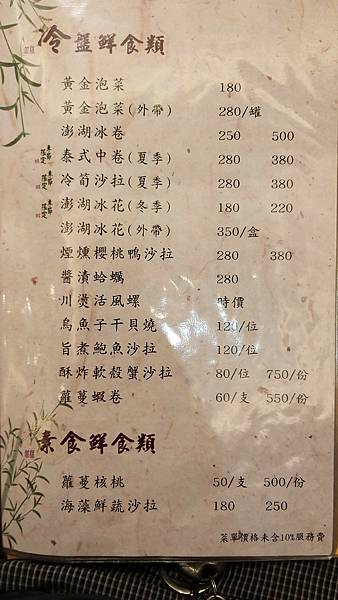 冷盤鮮食類
黃金泡菜 180
黃金泡菜(外帶) 280/罐
澎湖冰卷 250 500
季節限定 泰式中卷(夏季) 280 380
季節限定 冷筍沙拉(夏季) 280 380
季節限定 澎湖冰花(冬季) 180 220
澎湖冰花(外帶) 350/盒
煙燻櫻桃鴨沙拉 280 380
醬漬蛤蠣 280
川燙活風螺 時價
烏魚子干貝燒 120/位
旨煮鮑魚沙拉 120/位
酥炸軟殼蟹沙拉 80/位 750/份
蘿蔓蝦卷 60/支 550/份
素食鮮食類
蘿蔓核桃 50/支 500/份
海藻鮮蔬沙拉 180 250
菜單價格未含10%服務費